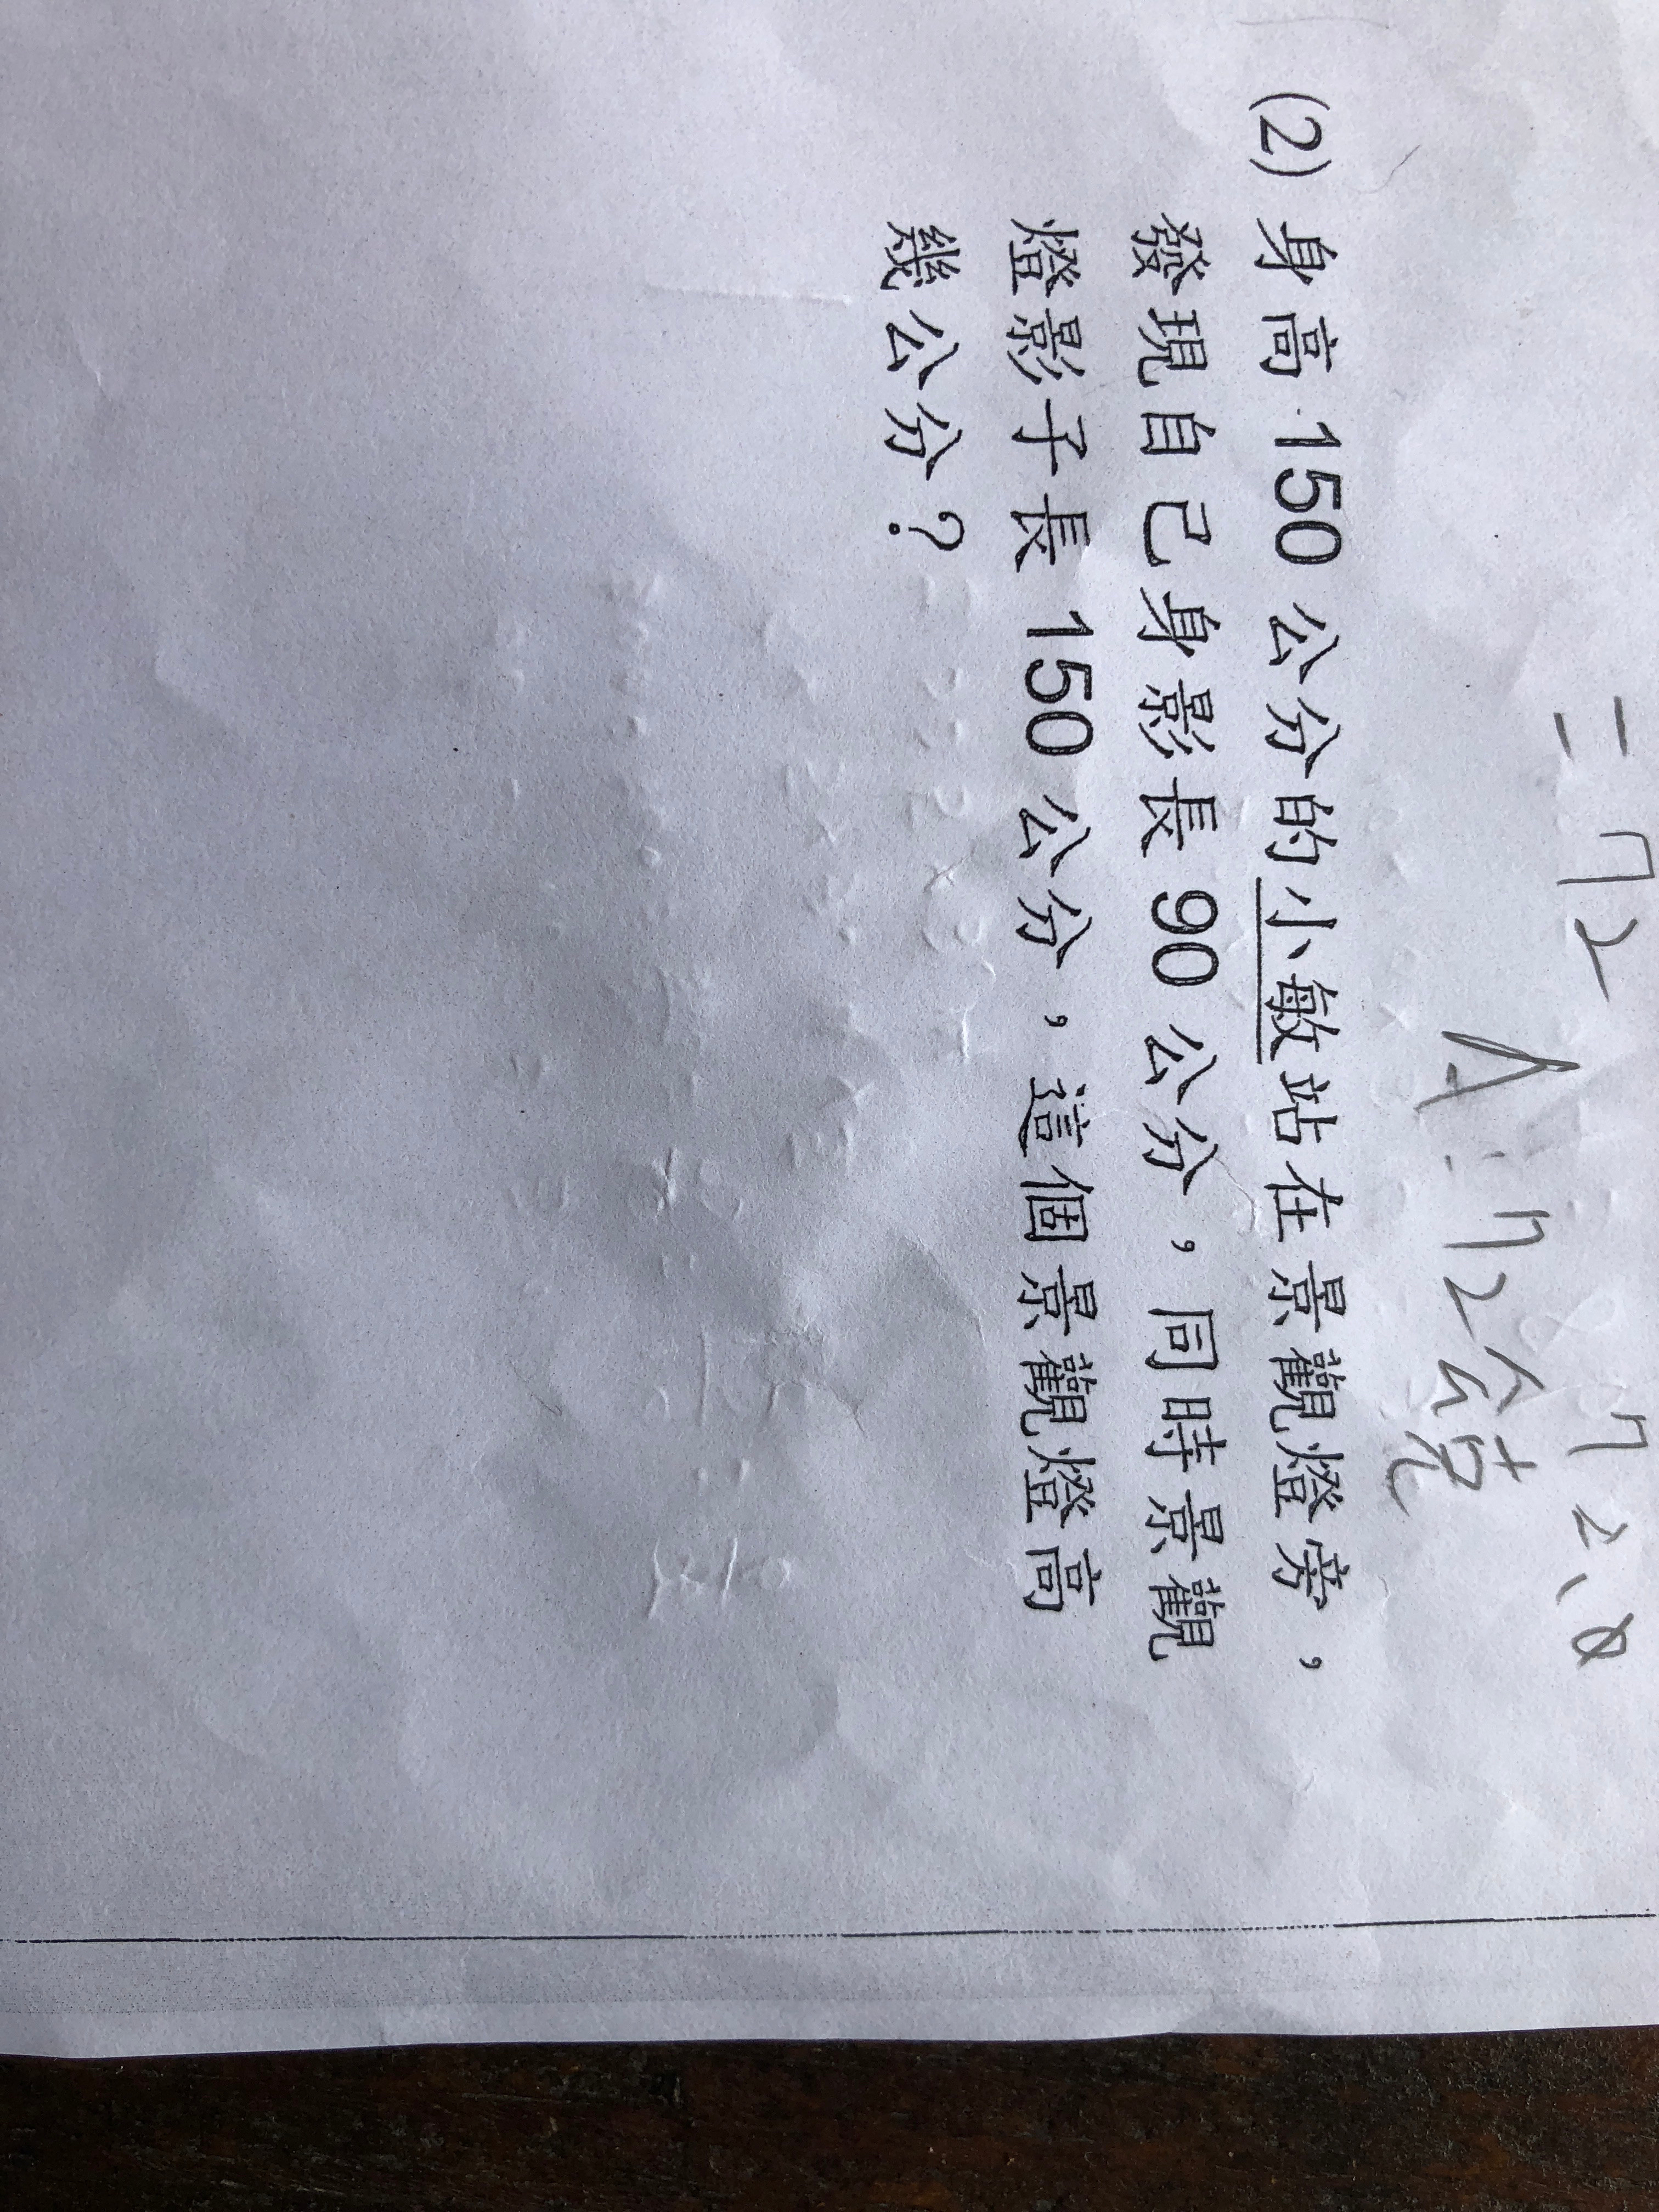 =72
72.0
A:72公克
(2) 身高150公分的小敏站在景觀燈旁，
發現自己身影長90公分，同時景觀
燈影子長150公分，這個景觀燈高
幾公分？